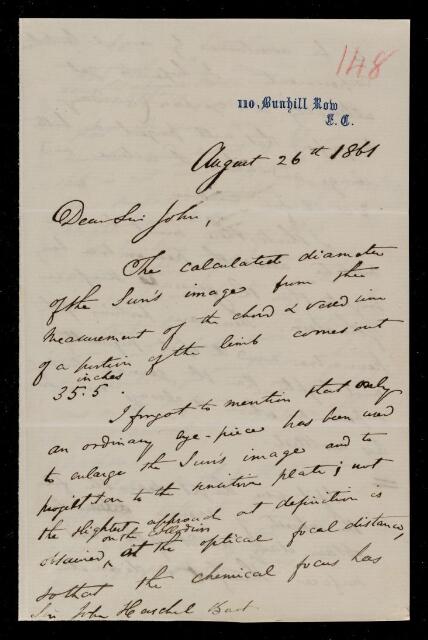 148
110, Bunhill Row
E.C.
August 26th 1861
Dear Sir John,
The calculated diameter
of the Sun's image from the
measurement of the chord & versed sine
of a portion of the limb comes out
35.5 inches.
I forgot to mention that only
an ordinary eye-piece has been used
to enlarge the Sun's image and to
project on to the sensitive plate; not
the slightest approach at definition is
obtained, on the collodion at the optical focal distance,
so that the chemical focus has
Sir John Herschel Bart